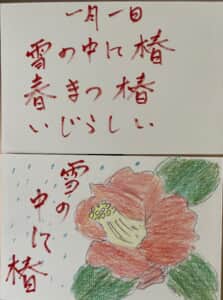 一月一日
雪の中に椿
春まつ椿
いじらしい
雪の
中に椿